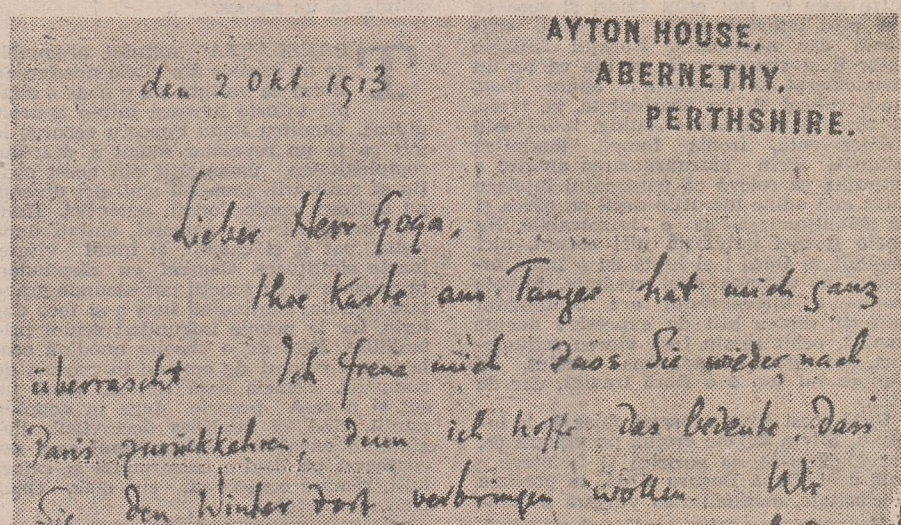 AYTON HOUSE,
ABERNETHY,
PERTHSHIRE.
den 2 Okt. 1913
Lieber Herr Goga,
Ihre Karte aus Tanger hat mich ganz
überrascht Ich freue mich dass Sie wieder nach
Paris zurückkehren; denn ich hoffe das bedeute, dass
Sie den Winter dort verbringen wollen. Wir